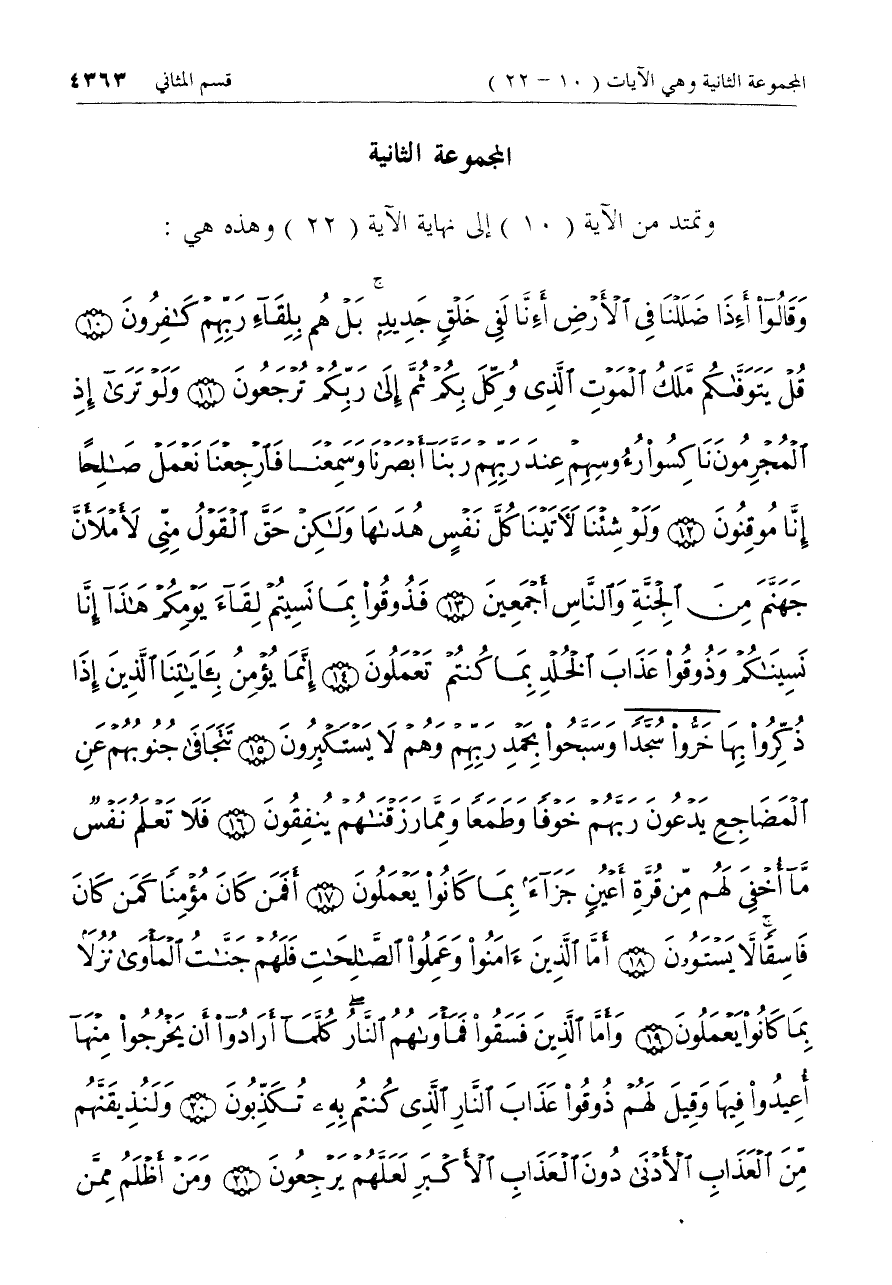 المجموعة الثانية وهي الآيات ( ١٠ - ٢٢ ) قسم المثاني ٤٣٦٣
المجموعة الثانية
وتمتد من الآية ( ١٠ ) إلى نهاية الآية ( ٢٢ ) وهذه هي :
وَقَالُوٓا۟ أَءِذَا ضَلَلْنَا فِى ٱلْأَرْضِ أَءِنَّا لَفِى خَلْقٍ جَدِيدٍۭ ۚ بَلْ هُم بِلِقَآءِ رَبِّهِمْ كَـٰفِرُونَ ۝١٠
قُلْ يَتَوَفَّىٰكُم مَّلَكُ ٱلْمَوْتِ ٱلَّذِى وُكِّلَ بِكُمْ ثُمَّ إِلَىٰ رَبِّكُمْ تُرْجَعُونَ ۝١١ وَلَوْ تَرَىٰٓ إِذِ
ٱلْمُجْرِمُونَ نَاكِسُوا۟ رُءُوسِهِمْ عِندَ رَبِّهِمْ رَبَّنَآ أَبْصَرْنَا وَسَمِعْنَا فَٱرْجِعْنَا نَعْمَلْ صَـٰلِحًا
إِنَّا مُوقِنُونَ ۝١٢ وَلَوْ شِئْنَا لَـَٔاتَيْنَا كُلَّ نَفْسٍ هُدَىٰهَا وَلَـٰكِنْ حَقَّ ٱلْقَوْلُ مِنِّى لَأَمْلَأَنَّ
جَهَنَّمَ مِنَ ٱلْجِنَّةِ وَٱلنَّاسِ أَجْمَعِينَ ۝١٣ فَذُوقُوا۟ بِمَا نَسِيتُمْ لِقَآءَ يَوْمِكُمْ هَـٰذَآ إِنَّا
نَسِينَـٰكُمْ وَذُوقُوا۟ عَذَابَ ٱلْخُلْدِ بِمَا كُنتُمْ تَعْمَلُونَ ۝١٤ إِنَّمَا يُؤْمِنُ بِـَٔايَـٰتِنَا ٱلَّذِينَ إِذَا
ذُكِّرُوا۟ بِهَا خَرُّوا۟ سُجَّدًا وَسَبَّحُوا۟ بِحَمْدِ رَبِّهِمْ وَهُمْ لَا يَسْتَكْبِرُونَ ۝١٥ تَتَجَافَىٰ جُنُوبُهُمْ عَنِ
ٱلْمَضَاجِعِ يَدْعُونَ رَبَّهُمْ خَوْفًا وَطَمَعًا وَمِمَّا رَزَقْنَـٰهُمْ يُنفِقُونَ ۝١٦ فَلَا تَعْلَمُ نَفْسٌ
مَّآ أُخْفِىَ لَهُم مِّن قُرَّةِ أَعْيُنٍ جَزَآءًۢ بِمَا كَانُوا۟ يَعْمَلُونَ ۝١٧ أَفَمَن كَانَ مُؤْمِنًا كَمَن كَانَ
فَاسِقًا ۚ لَّا يَسْتَوُۥنَ ۝١٨ أَمَّا ٱلَّذِينَ ءَامَنُوا۟ وَعَمِلُوا۟ ٱلصَّـٰلِحَـٰتِ فَلَهُمْ جَنَّـٰتُ ٱلْمَأْوَىٰ نُزُلًۢا
بِمَا كَانُوا۟ يَعْمَلُونَ ۝١٩ وَأَمَّا ٱلَّذِينَ فَسَقُوا۟ فَمَأْوَىٰهُمُ ٱلنَّارُ ۖ كُلَّمَآ أَرَادُوٓا۟ أَن يَخْرُجُوا۟ مِنْهَآ
أُعِيدُوا۟ فِيهَا وَقِيلَ لَهُمْ ذُوقُوا۟ عَذَابَ ٱلنَّارِ ٱلَّذِى كُنتُم بِهِۦ تُكَذِّبُونَ ۝٢٠ وَلَنُذِيقَنَّهُم
مِّنَ ٱلْعَذَابِ ٱلْأَدْنَىٰ دُونَ ٱلْعَذَابِ ٱلْأَكْبَرِ لَعَلَّهُمْ يَرْجِعُونَ ۝٢١ وَمَنْ أَظْلَمُ مِمَّن